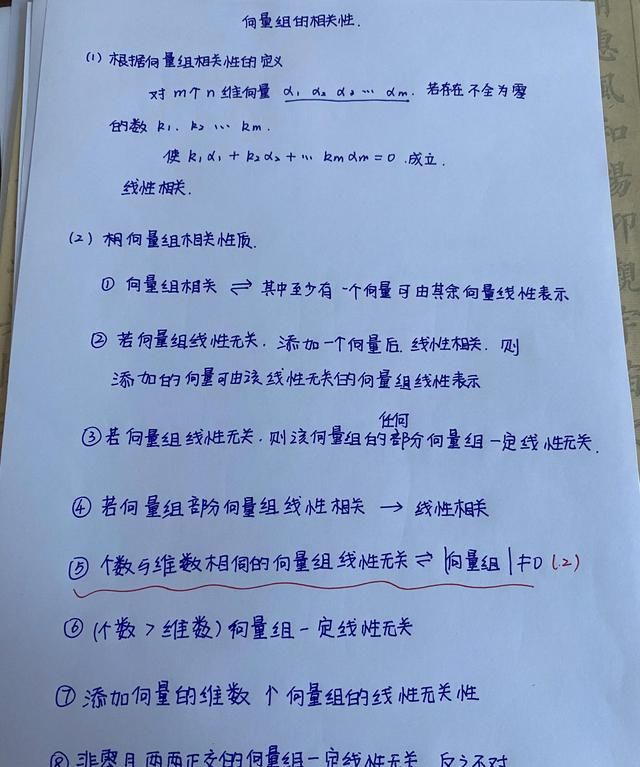 向量组的相关性.
(1) 根据向量组相关性的定义
对 m个 n 维向量 α₁ α₂ α₃ … αm. 若存在不全为零
的数 k₁. k₂ … km.
使 k₁α₁ + k₂α₂ + … kmαm = 0 .成立.
线性相关.
(2) 向量组相关性质.
① 向量组相关 ⇌ 其中至少有一个向量可由其余向量线性表示
② 若向量组线性无关. 添加一个向量后. 线性相关. 则
添加的向量可由该线性无关的向量组线性表示
③ 若向量组线性无关. 则该向量组的任何部分向量组一定线性无关.
④ 若向量组部分向量组线性相关 → 线性相关
⑤ 个数与维数相同的向量组线性无关 ⇌ |向量组| ≠0 (.2)
⑥ (个数 > 维数) 向量组一定线性无关
⑦ 添加向量的维数 ↑ 向量组的线性无关性
⑧ 非零且两两正交的向量组一定线性无关 反之不对